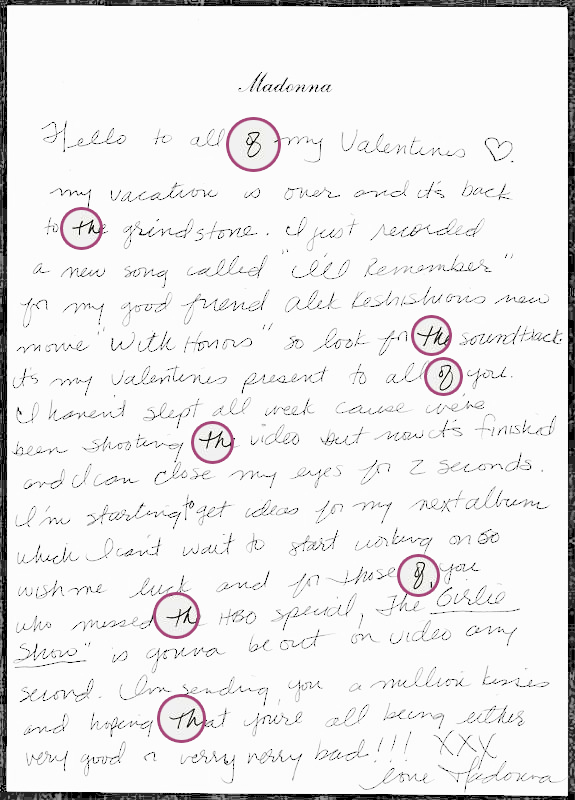 Madonna
Hello to all of my Valentines ♡.
my vacation is over and it's back
to the grindstone. I just recorded
a new song called "I'll Remember"
for my good friend Alek Keshishians new
movie "With Honors" so look for the soundtrack.
its my Valentines present to all of you.
I haven't slept all week cause we've
been shooting the video but now it's finished
and I can close my eyes for 2 seconds.
I'm starting to get ideas for my next album
which I can't wait to start working on so
wish me luck and for those of you
who missed the HBO special, The Girlie
Show" is gonna be out on video any
second. I'm sending you a million kisses
and hoping that you're all being either
very good or verry verry bad!!! XXX
Love Madonna